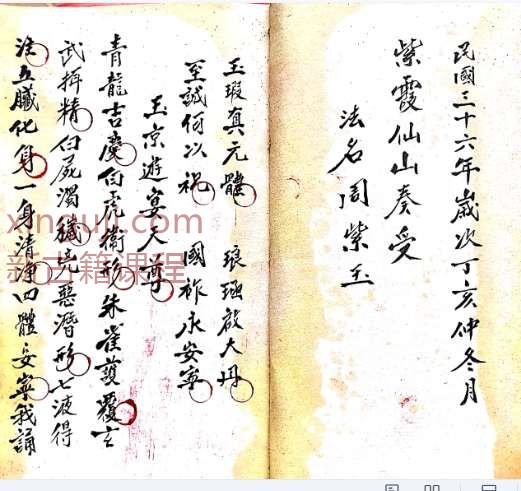 民國三十六年歲次丁亥仲冬月
紫霞仙山奏受
法名周紫玉
玉瑕真元體 琅函啟大丹
至誠何以祝 國祚永安寧
玉京遊宴天尊
青龍吉慶白虎衛形朱雀護覆玄
武拆精白屍濁穢陀惡潛形七液得
注五臟化身一身清淨四體妥寧我誦
xinguji.com
新古籍课程